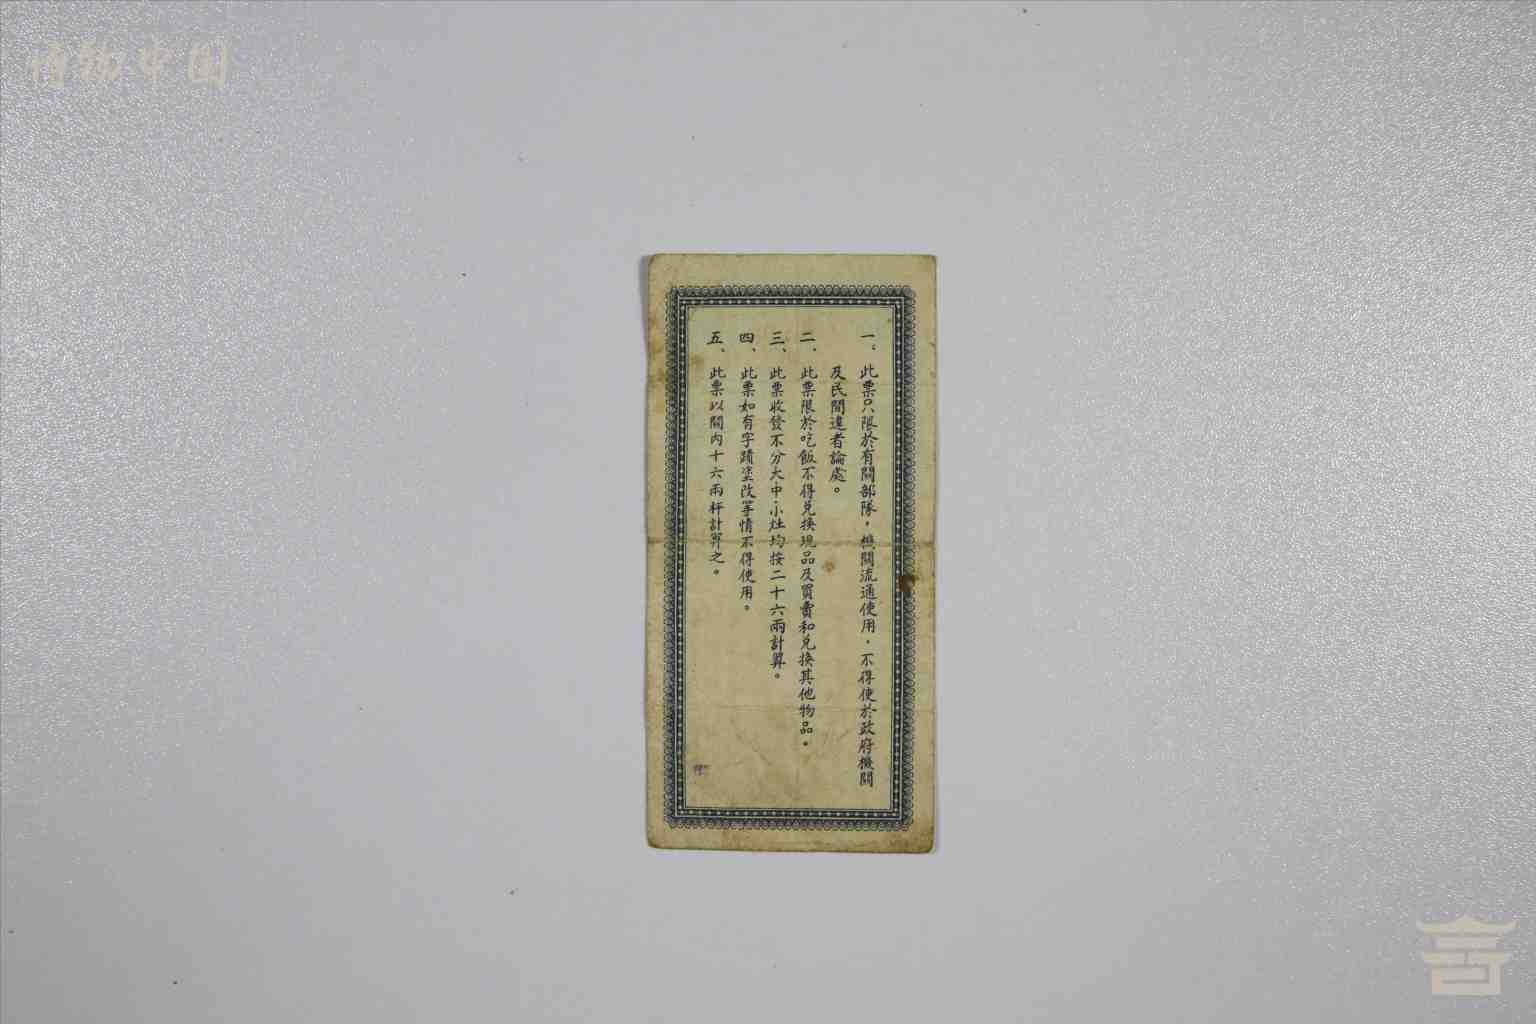 博物中国
一、此票只限於有關部隊，機關流通使用，不得使於政府機關
及民間違者論處。
二、此票限於吃飯不得兌換現品及買賣和兌換其他物品。
三、此票收發不分大中小灶均按二十六兩計算。
四、此票如有字蹟塗改等情不得使用。
五、此票以關內十六兩秤計算之。